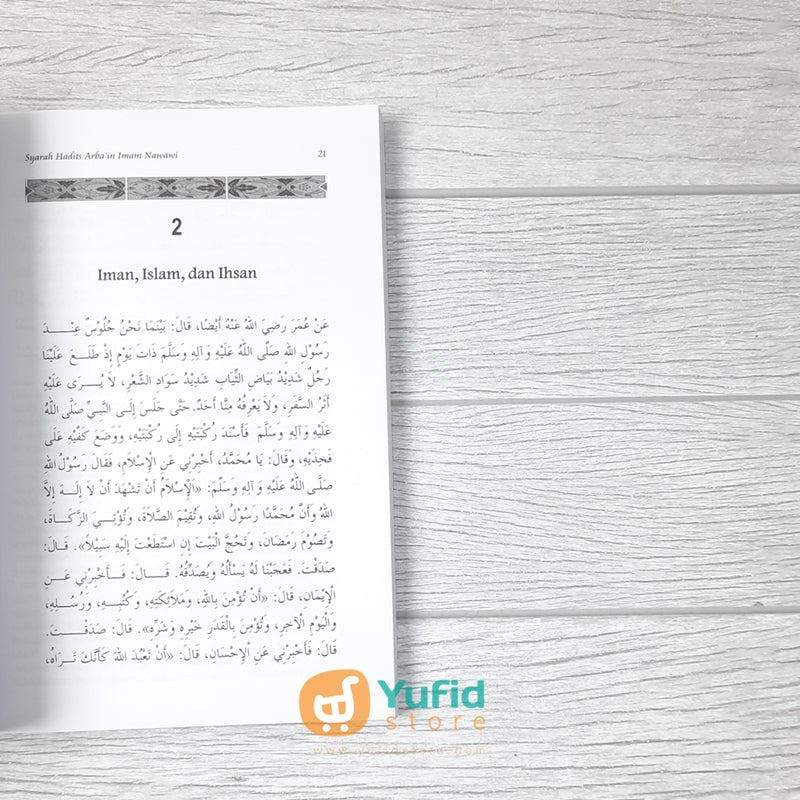 Syarah Hadits Arba'in Imam Nawawi 21
2
Iman, Islam, dan Ihsan
عَنْ عُمَرَ رَضِيَ اللهُ عَنْهُ أَيْضًا، قَالَ: بَيْنَمَا نَحْنُ جُلُوْسٌ عِنْـــدَ
رَسُوْلِ اللهِ صَلَّى اللهُ عَلَيْهِ وَآلِهِ وَسَلَّمَ ذَاتَ يَوْمٍ إِذْ طَلَـعَ عَلَيْنَا
رَجُلٌ شَدِيْدُ بَيَاضِ الثِّيَابِ شَدِيْدُ سَوَادِ الشَّعْرِ، لاَ يُـــرَى عَلَيْهِ
أَثَرُ السَّفَرِ، وَلاَ يَعْرِفُهُ مِنَّا أَحَدٌ. حَتَّى جَلَسَ إِلَى النَّبِيِّ صَلَّى اللهُ
عَلَيْهِ وَآلِهِ وَسَلَّمَ فَأَسْنَدَ رُكْبَتَيْهِ إِلَى رُكْبَتَيْهِ، وَوَضَعَ كَفَّيْهِ عَلَى
فَخِذَيْهِ، وَقَالَ: يَا مُحَمَّدُ، أَخْبِرْنِي عَنِ الْإِسْلاَمِ، فَقَالَ رَسُوْلُ اللهِ
صَلَّى اللهُ عَلَيْهِ وَ آلِهِ وَسَلَّمَ: «اَلْإِسْلاَمُ أَنْ تَشْهَدَ أَنْ لاَ إِلَـهَ إِلاَّ
اللهُ وَأَنَّ مُحَمَّدًا رَسُوْلُ اللهِ، وَتُقِيْمَ الصَّلاَةَ، وَتُؤْتِـيَ الزَّكَـاةَ،
وَتَصُوْمَ رَمَضَانَ، وَتَحُجَّ الْبَيْتَ إِنِ اسْتَطَعْتَ إِلَيْهِ سَبِيْلاً». قَـالَ:
صَدَقْتَ. فَعَجِبْنَا لَهُ يَسْأَلُهُ وَيُصَدِّقُهُ. قَـــالَ: فَـــأَخْبِرْنِي عَـنِ
الْإِيْمَانِ، قَالَ: «أَنْ تُؤْمِنَ بِاللهِ، وَمَلاَئِكَتِهِ، وَكُتُبِــهِ، وَرُسُلِـهِ،
وَالْيَوْمِ الْآخِرِ، وَتُؤْمِنَ بِالْقَدَرِ خَيْرِهِ وَشَرِّهِ». قَالَ: صَدَقْـــتَ.
قَالَ: فَأَخْبِرْنِي عَنِ الْإِحْسَانِ، قَالَ: «أَنْ تَعْبُدَ اللهَ كَأَنَّكَ تَـرَاهُ،
Yufid
store
www.yufidstore.com